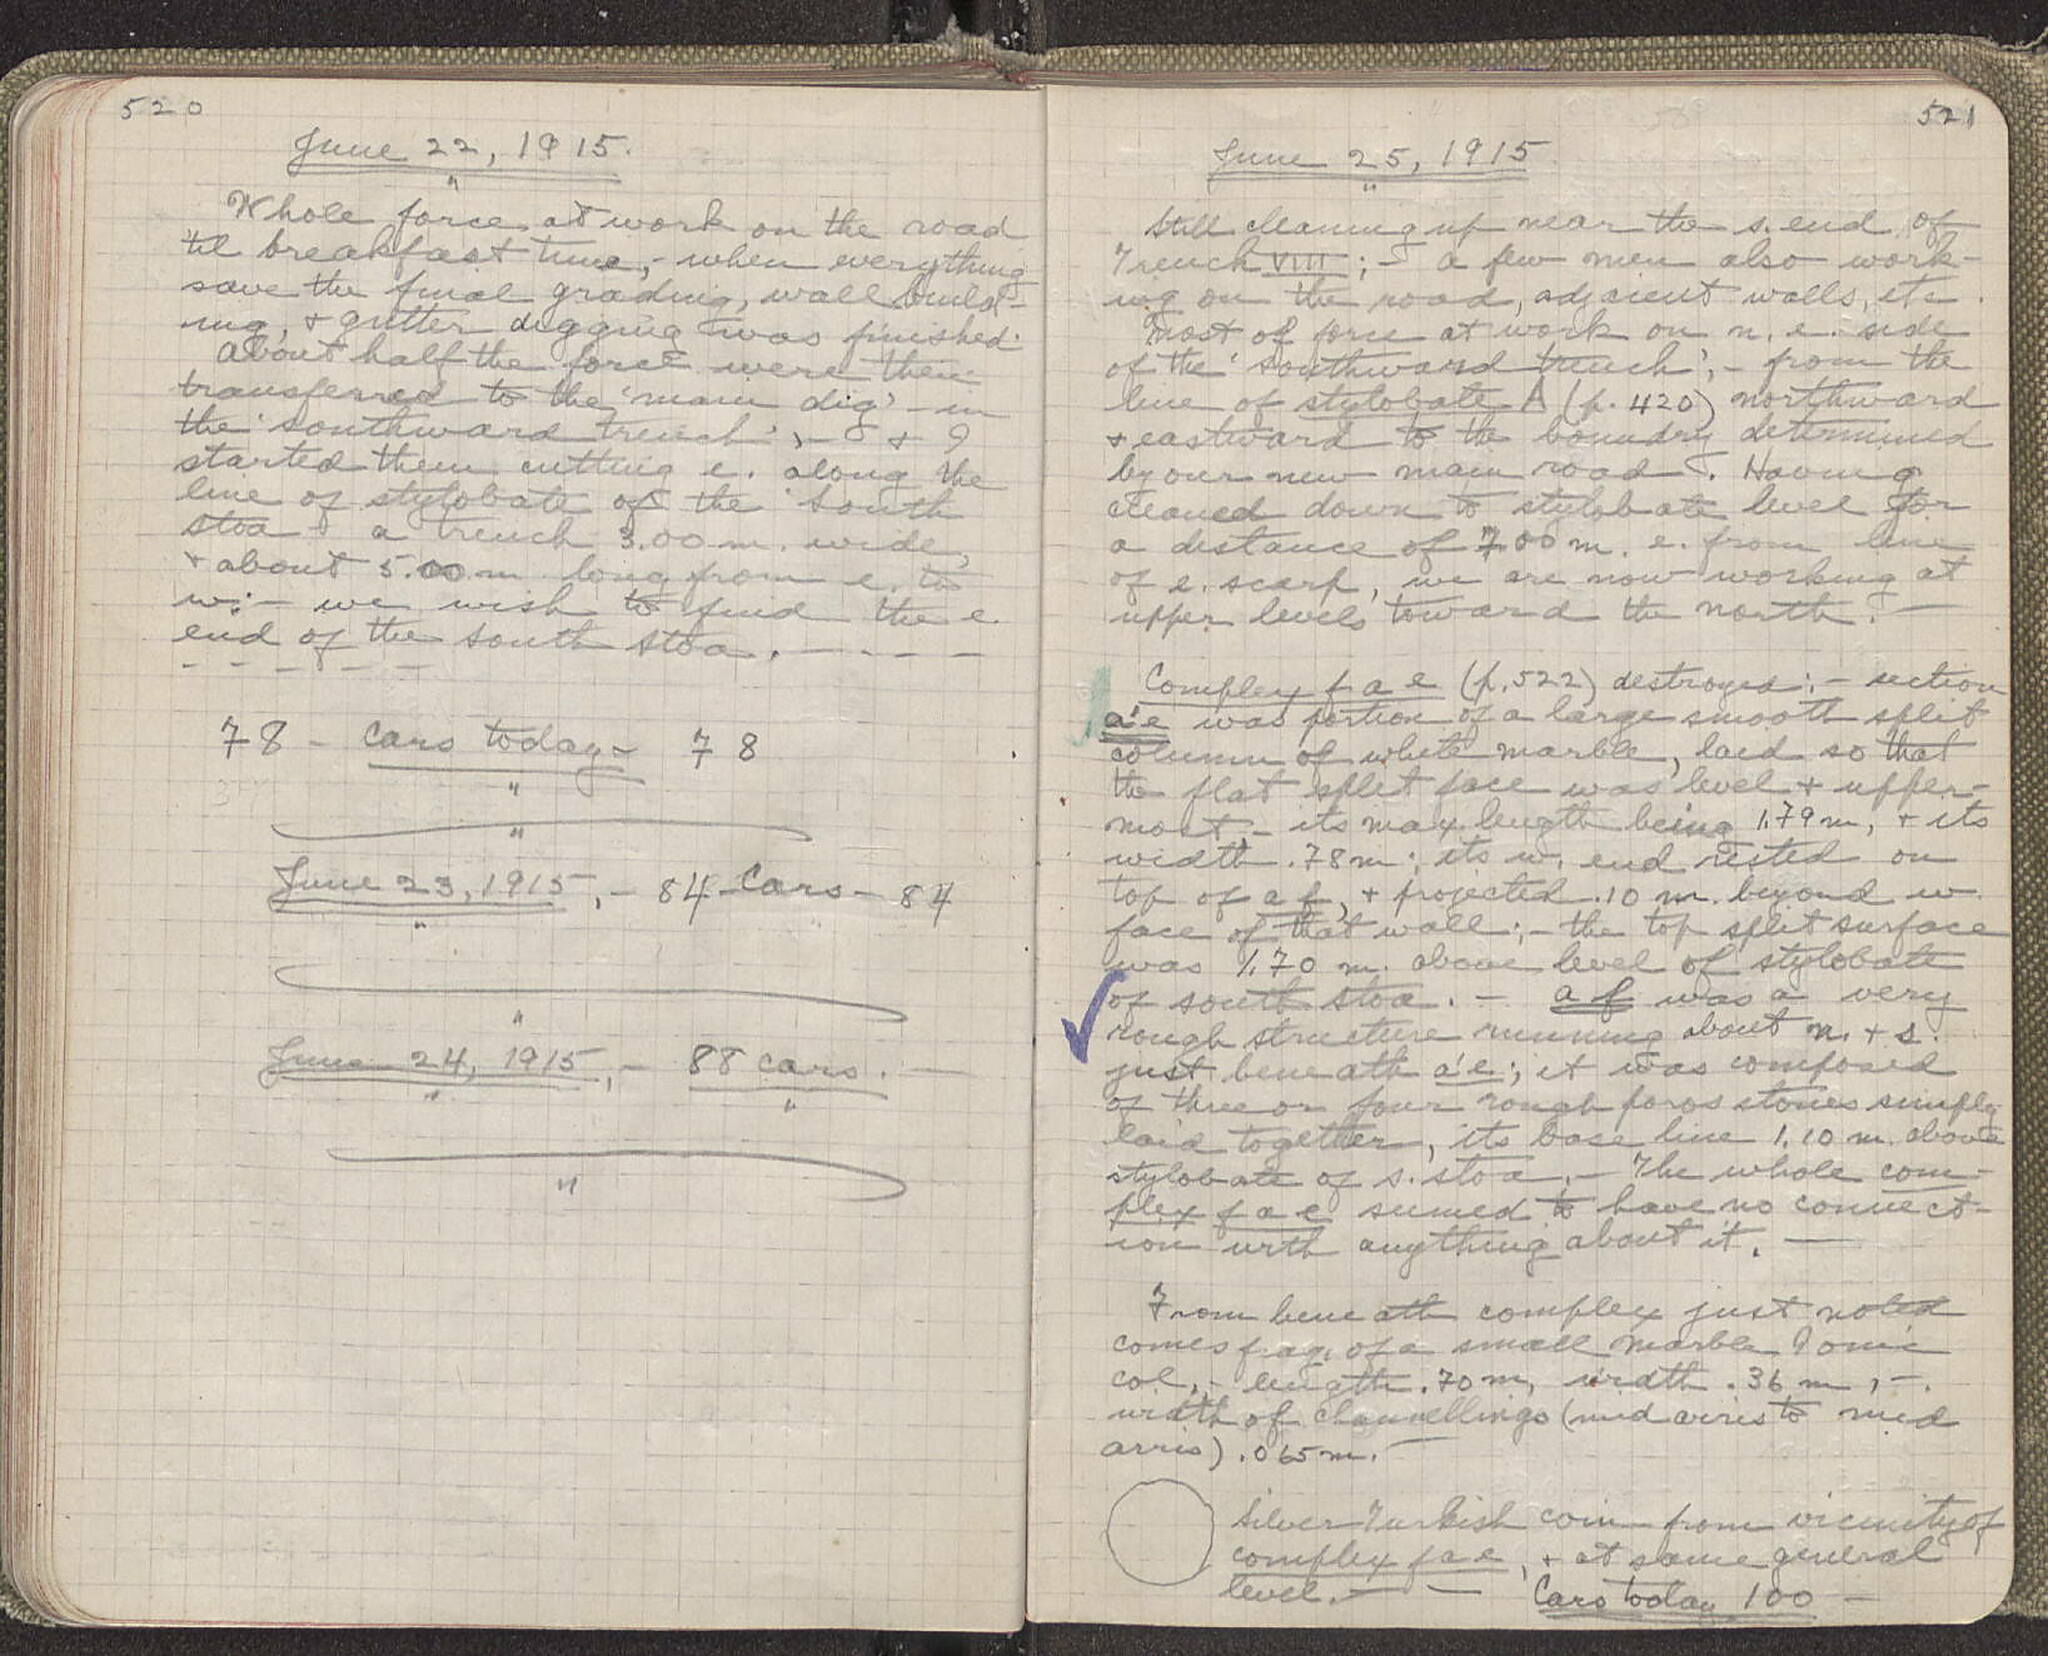 520
June 22, 1915.
Whole force at work on the road
til breakfast time,- when everything
save the final grading, wall build-
ing, + gutter digging was finished.
About half the force were then
transferred to the 'main dig' - in
the 'southward trench',- + I
started them cutting e. along the
line of stylobate of the South
stoa a trench 3.00 m. wide,
+ about 5.00 m long from e. to
w:- we wish to find the e.
end of the south stoa. - - - -
- - - - - -
78 - Cars today - 78
"
"
June 23, 1915,- 84 - Cars - 84
"
"
June 24, 1915,- 88 cars. -
" "
"
521
June 25, 1915
"
Still cleaning up near the s. end of
Trench VIII;- a few men also work-
ing on the road, adjacent walls, etc.
Most of force at work on n. e. side
of the 'southward trench',- from the
line of stylobate A (p. 420) northward
+ eastward to the boundry determined
by our new main road. Having
cleaned down to stylobate level for
a distance of 7.00 m. e. from line
of e. scarp, we are now working at
upper levels toward the north. -
Complex f a e (p. 522) destroyed:- section
a'e was portion of a large smooth split
column of white marble, laid so that
the flat split face was level + upper-
most,- its max. length being 1.79 m, + its
width .78 m; its w. end rested on
top of a f, + projected .10 m. beyond w.
face of that wall;- the top split surface
was 1.70 m. above level of stylobate
of south stoa. - a f was a very
rough structure running about n. + s.
just beneath a'e; it was composed
of three or four rough poros stones simply
laid together, its base line 1.10 m. above
stylobate of s. stoa. - The whole com-
plex f a e seemed to have no connect-
ion with anything about it. -
From beneath complex just noted
comes frag. of a small marble Ionic
col,- length .70 m, width .36 m,-
width of channellings (mid arris to mid
arris) .065 m. -
Silver Turkish coin from vicinity of
complex f a e, + at same general
level. - - Cars today 100 -